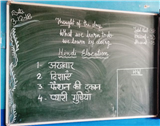 Thought of the day
What we learn to do
we learn by doing.
Hindi Elocution
1. अखबार
2. दिशाएँ
3. फैशन की दुकान
4. प्यारी गुड़िया